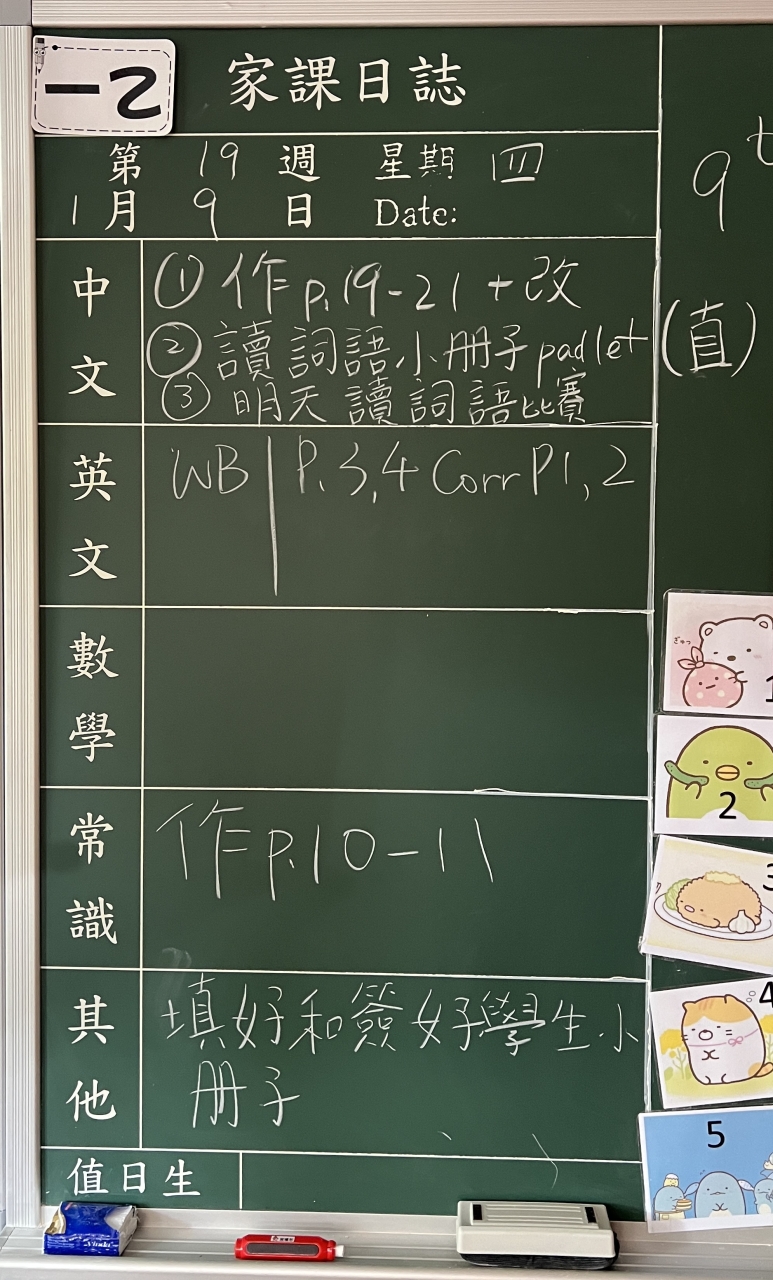 一乙
家課日誌
第 19 週 星期 四
1月 9 日 Date:
9 t
中文
① 作 p.19-21 + 改
② 讀詞語小册子 padlet (直)
③ 明天讀詞語比賽
英文
WB | P.3,4 Corr P1,2
數學
常識
作 p.10-11
其他
填好和簽好學生小
册子
值日生
ぎゅっ
1
2
3
4
5